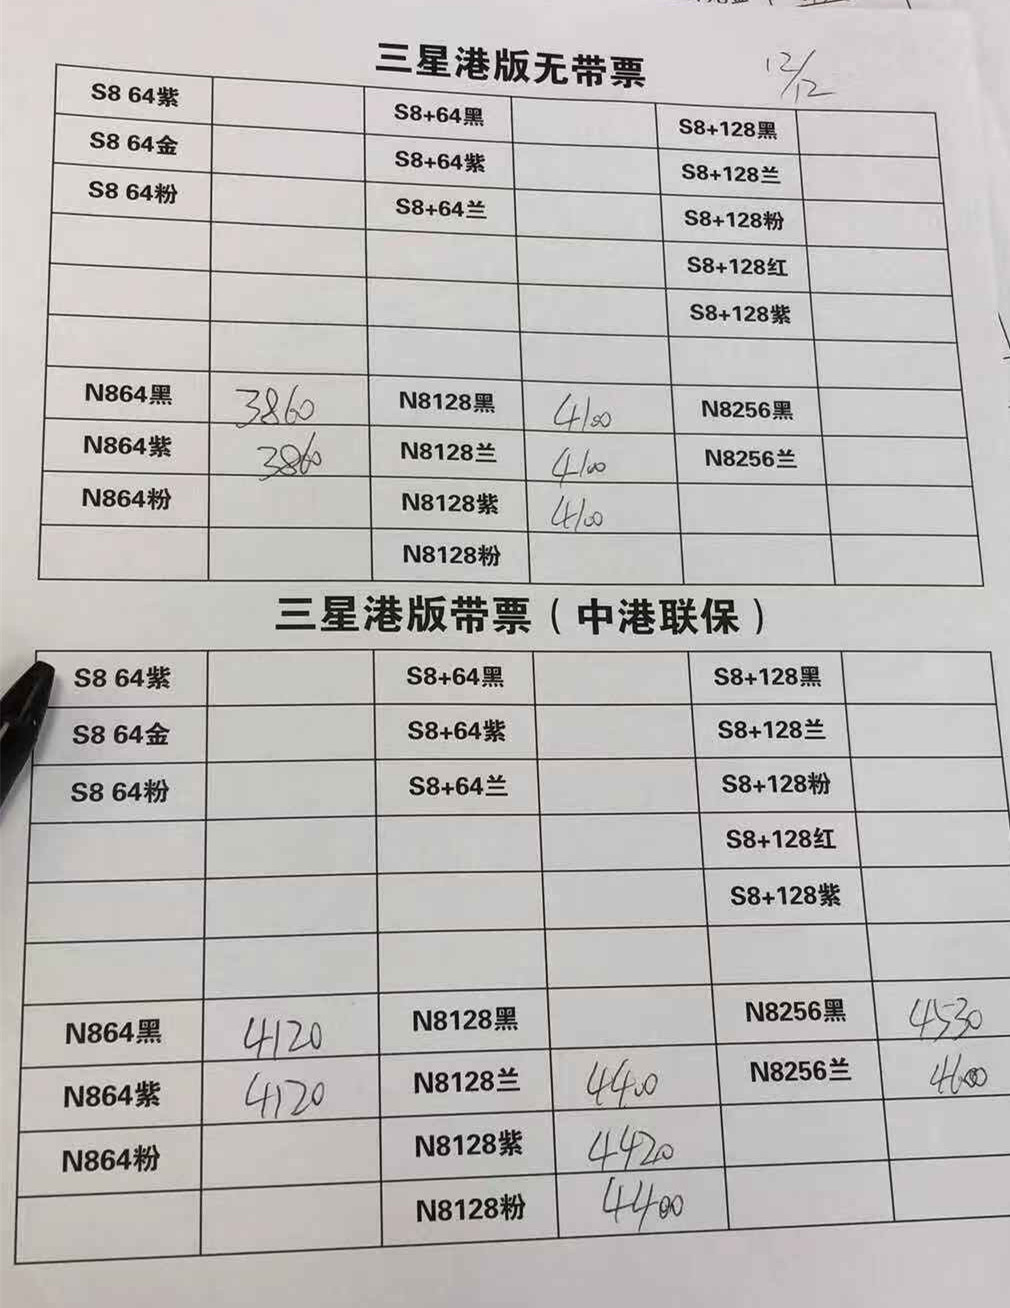 三星港版无带票 12/12
S8 64紫 S8+64黑 S8+128黑
S8 64金 S8+64紫 S8+128兰
S8 64粉 S8+64兰 S8+128粉
S8+128红
S8+128紫
N864黑 3860 N8128黑 4100 N8256黑
N864紫 3860 N8128兰 4100 N8256兰
N864粉 N8128紫 4100
N8128粉
三星港版带票（中港联保）
S8 64紫 S8+64黑 S8+128黑
S8 64金 S8+64紫 S8+128兰
S8 64粉 S8+64兰 S8+128粉
S8+128红
S8+128紫
N864黑 4120 N8128黑 N8256黑 4530
N864紫 4120 N8128兰 4400 N8256兰 4600
N864粉 N8128紫 4420
N8128粉 4400